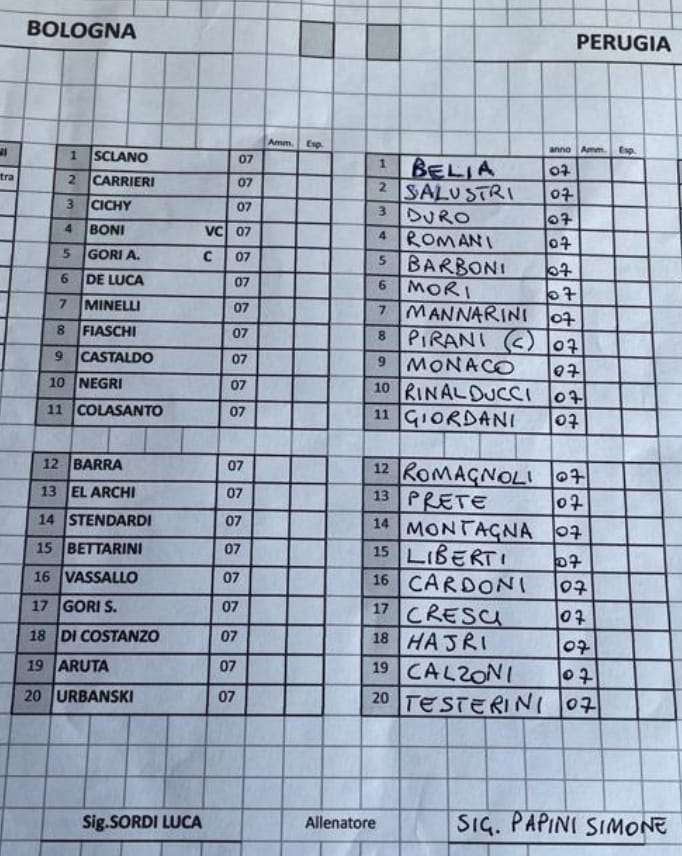 BOLOGNA
PERUGIA
Amm. Esp.
anno Amm. Esp.
tra
1 SCLANO 07
1 BELIA 07
2 CARRIERI 07
2 SALUSTRI 07
3 CICHY 07
3 DURO 07
4 BONI VC 07
4 ROMANI 07
5 GORI A. C 07
5 BARBONI 07
6 DE LUCA 07
6 MORI 07
7 MINELLI 07
7 MANNARINI 07
8 FIASCHI 07
8 PIRANI (C) 07
9 CASTALDO 07
9 MONACO 07
10 NEGRI 07
10 RINALDUCCI 07
11 COLASANTO 07
11 GIORDANI 07
12 BARRA 07
12 ROMAGNOLI 07
13 EL ARCHI 07
13 PRETE 07
14 STENDARDI 07
14 MONTAGNA 07
15 BETTARINI 07
15 LIBERTI 07
16 VASSALLO 07
16 CARDONI 07
17 GORI S. 07
17 CRESCI 07
18 DI COSTANZO 07
18 HAJRI 07
19 ARUTA 07
19 CALZONI 07
20 URBANSKI 07
20 TESTERINI 07
Sig.SORDI LUCA Allenatore SIG. PAPINI SIMONE